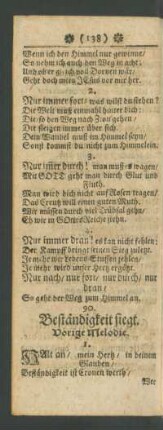 (138)
Wenn ich den Himmel nur gewinne/
So nehm ich auch den Weg in acht:
Und ob er gleich voll Dornen wär/
Geht doch mein JEsus vor mir her.
2.
Nur immer fort/ was willt du stehen?
Die Welt muß einmahl hinter dich:
Die so den Weg nach Zion gehen/
Die steigen immer über sich.
Dein Wandel muß im Himmel seyn/
Sonst kommst du nicht zum Himmel ein.
3.
Nur immer durch! man muß es wagen/
Mit GOtt geht man durch Glut und
Fluth.
Man wird dich nicht auf Rosen tragen/
Das Creutz will einen guten Muth.
Wir müssen durch viel Trübsal gehn/
Eh wir in GOttes Reiche stehn.
4.
Nur immer dran! es kan nicht fehlen;
Der Kampff bringt seinen Sieg zuletzt.
Je mehr wir Lebens-Stuffen zehlen/
Je mehr wird unser Hertz ergötzt.
Nur nach/ nur fort/ nur durch/ nur
dran/
So geht der Weg zum Himmel an.
90.
Beständigkeit siegt.
Vorige Melodie.
1.
HAlt an/ mein Hertz/ in deinem
Glauben/
Beständigkeit ist Cronen werth/
Wer